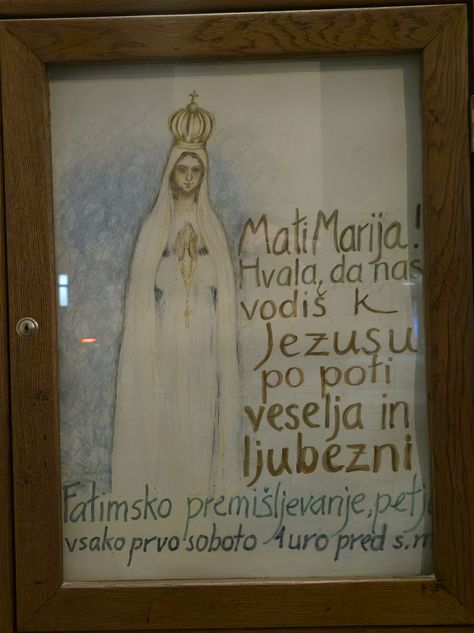 Mati Marija!
Hvala, da nas
vodiš k
Jezusu
po poti
veselja in
ljubezni
Fatimsko premišljevanje, petj
vsako prvo soboto 1 uro pred s. m